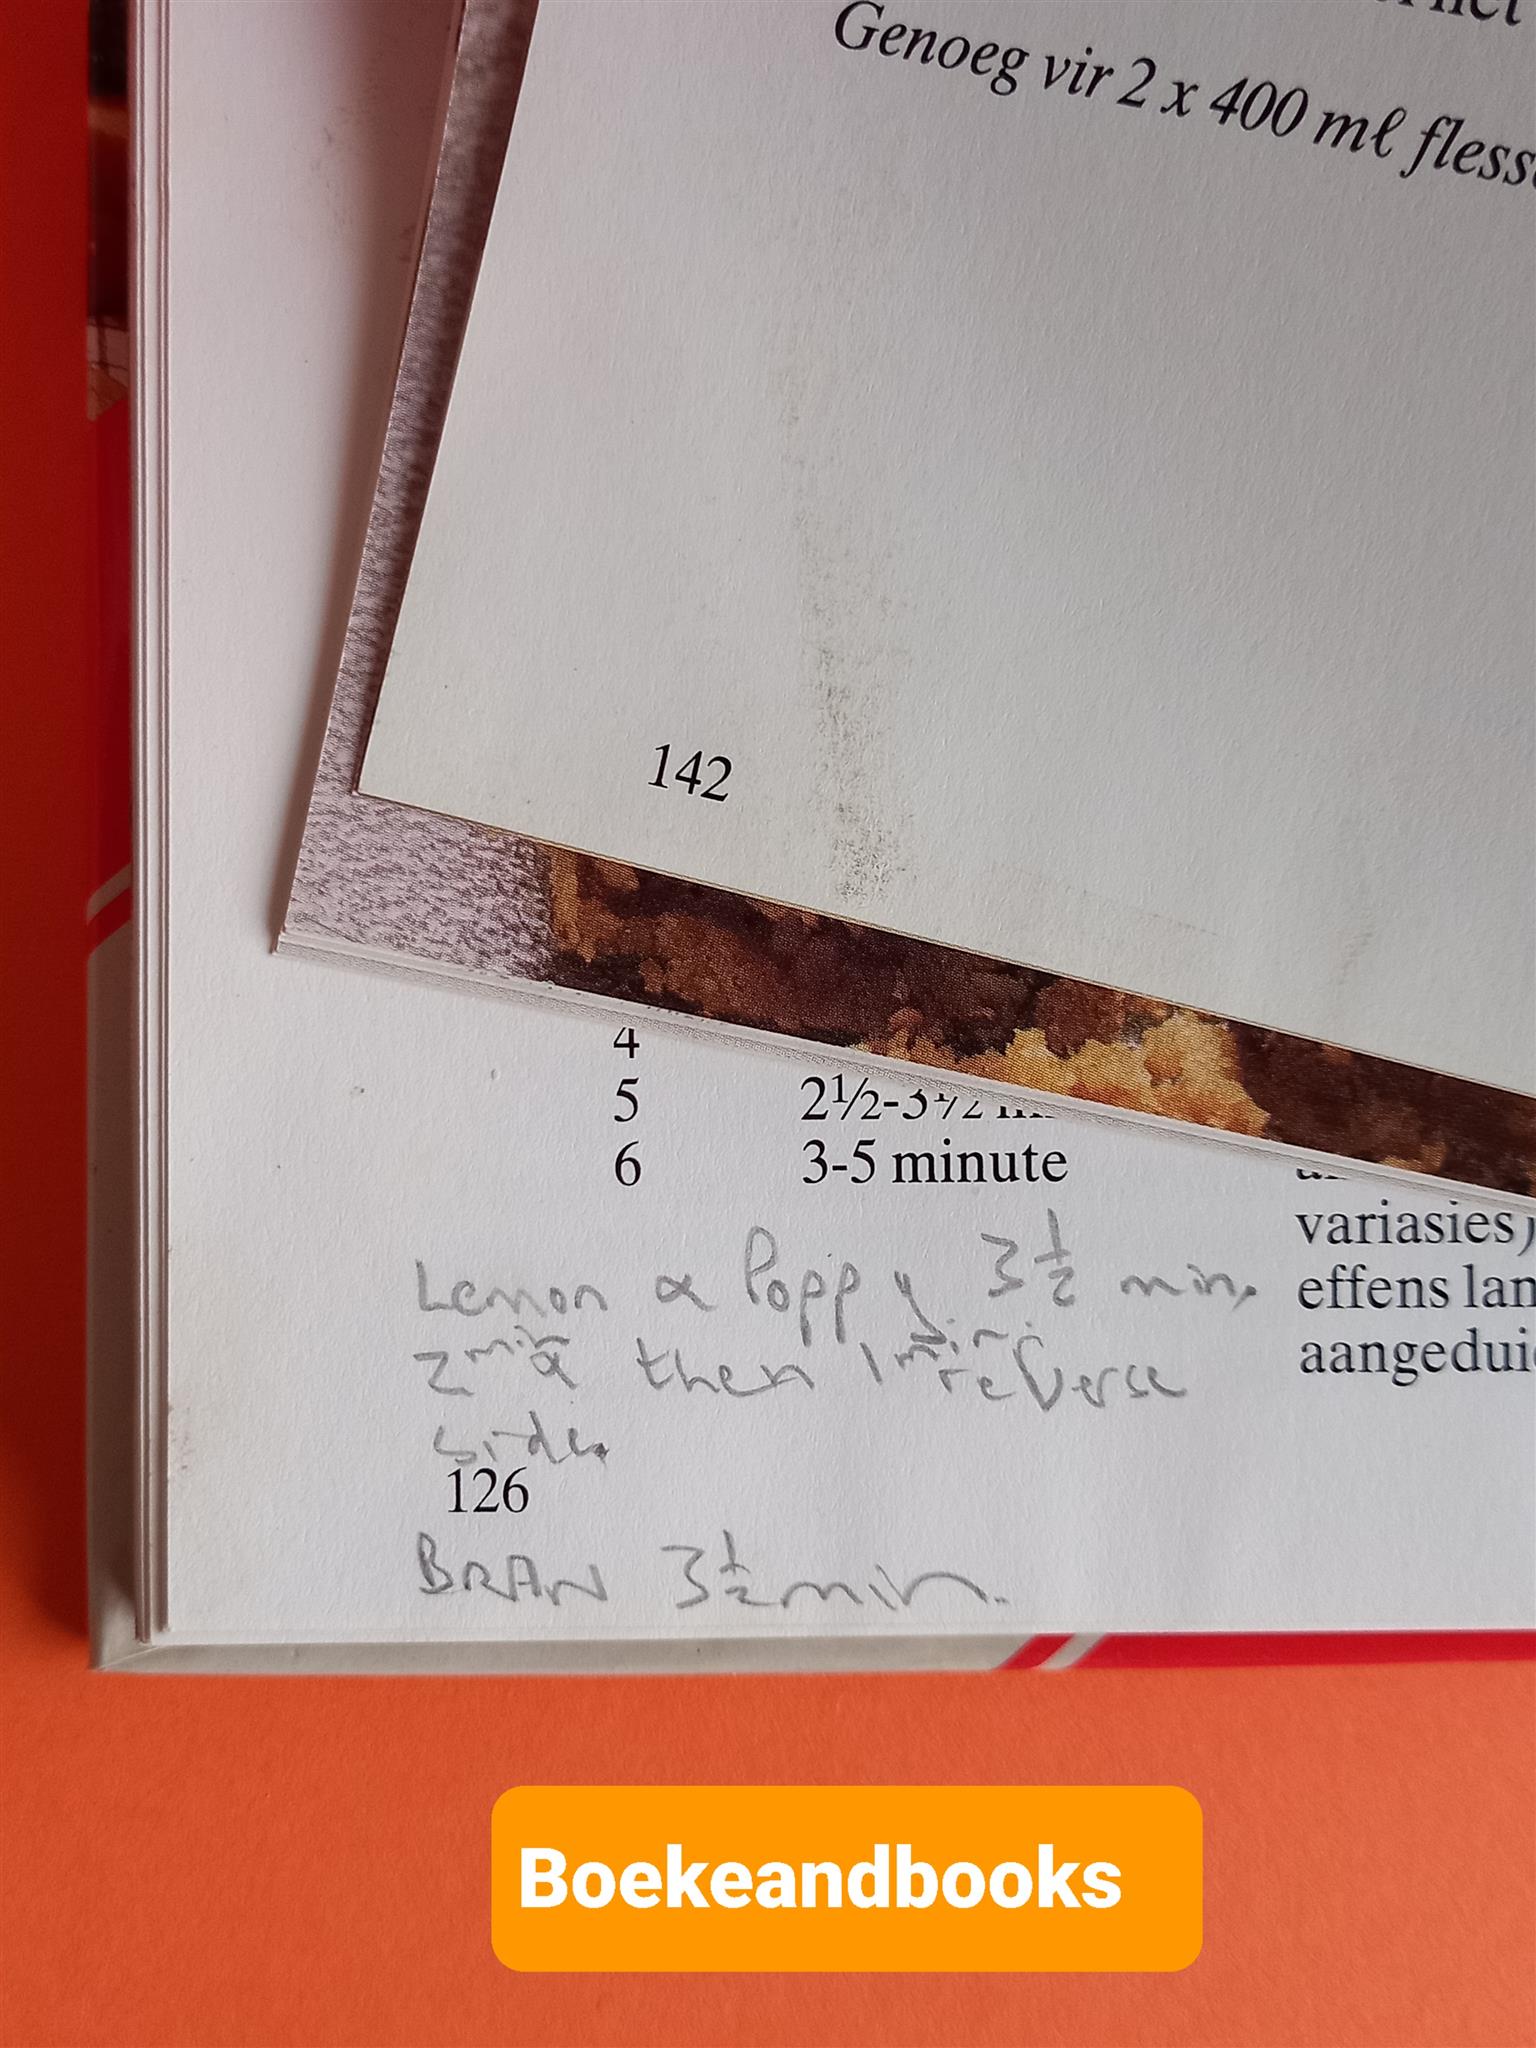 Genoeg vir 2 x 400 mℓ
142
4
5 2½-3½
6 3-5 minute
variasies)
effens
Lemon & Poppy 3½ min.
2 min & then 1 min. reverse
side.
126
BRAN 3½ min.
Boekeandbooks